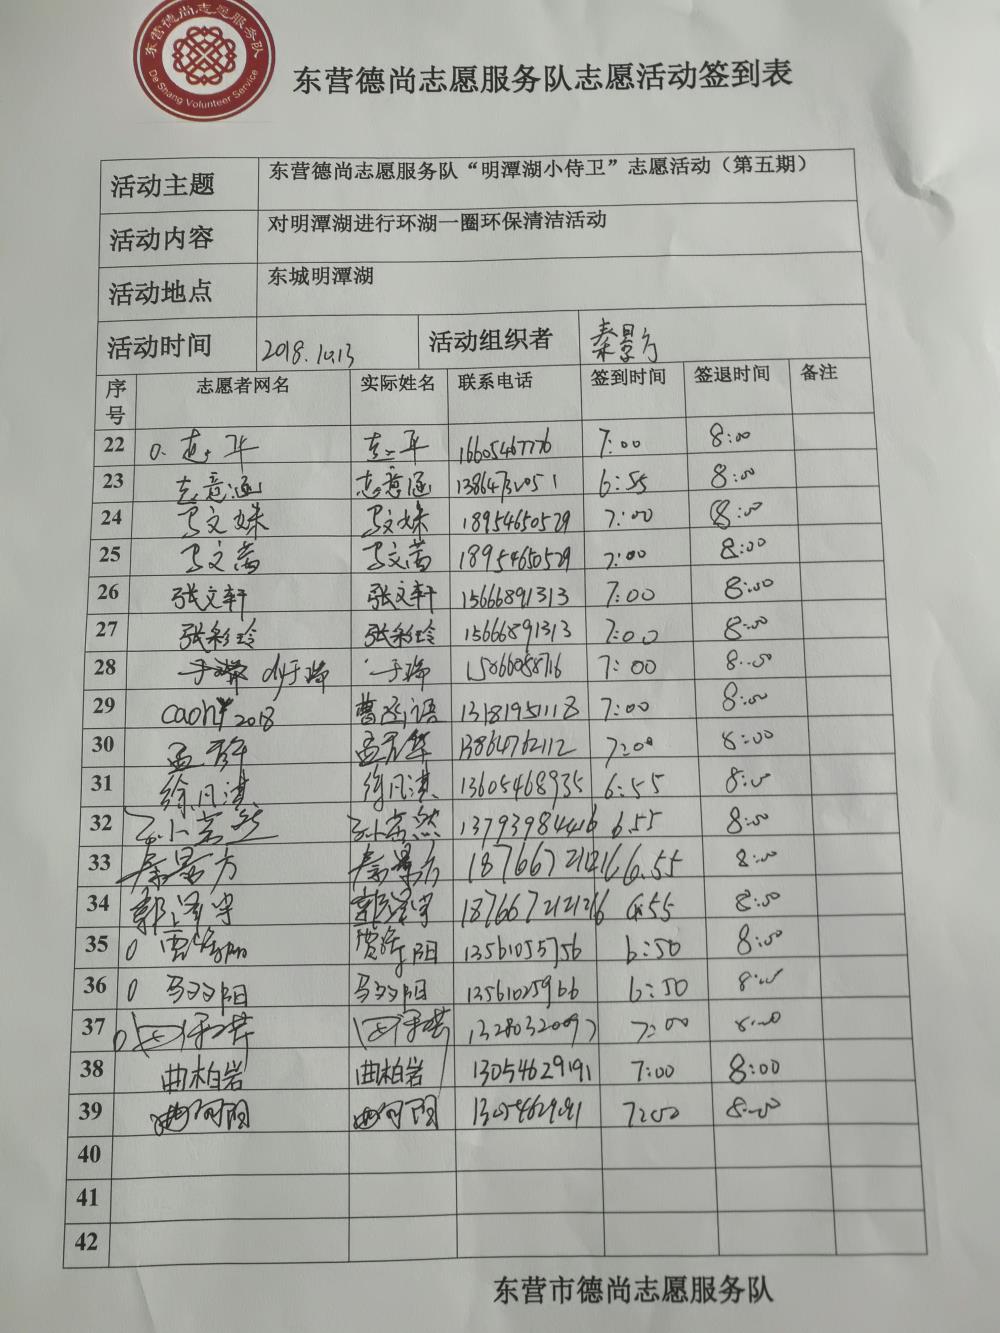 东营德尚志愿服务队
De Shang Volunteer Service
东营德尚志愿服务队志愿活动签到表
活动主题 东营德尚志愿服务队“明潭湖小侍卫”志愿活动（第五期）
活动内容 对明潭湖进行环湖一圈环保清洁活动
活动地点 东城明潭湖
活动时间 2018.10.13 活动组织者 秦景方
序号 志愿者网名 实际姓名 联系电话 签到时间 签退时间 备注
22 16605467776 7:00 8:00
23 6:55 8:00
24 马文姝 马文姝 18954650529 7:00 8:00
25 马文茜 马文茜 18954650529 7:00 8:00
26 张文轩 张文轩 15666891313 7:00 8:00
27 张彩玲 张彩玲 15666891313 7:00 8:00
28 dy于瑞 于瑞 15866058716 7:00 8:00
29 2018 13181951118 7:00 8:00
30 13864762112 7:00 8:00
31 徐凡淇 徐凡淇 13605468935 6:55 8:00
32 13793984416 6.55 8:00
33 秦景方 秦景方 18766721216 6.55 8:00
34 郭泽宇 郭泽宇 6.55 8:00
35 13561055756 6:50 8:00
36 马双阳 马双阳 13561025966 6:50 8:00
37 13280320097 7:00 8:00
38 曲柏岩 曲柏岩 13054629191 7:00 8:00
39 7:00 8:00
40
41
42
东营市德尚志愿服务队